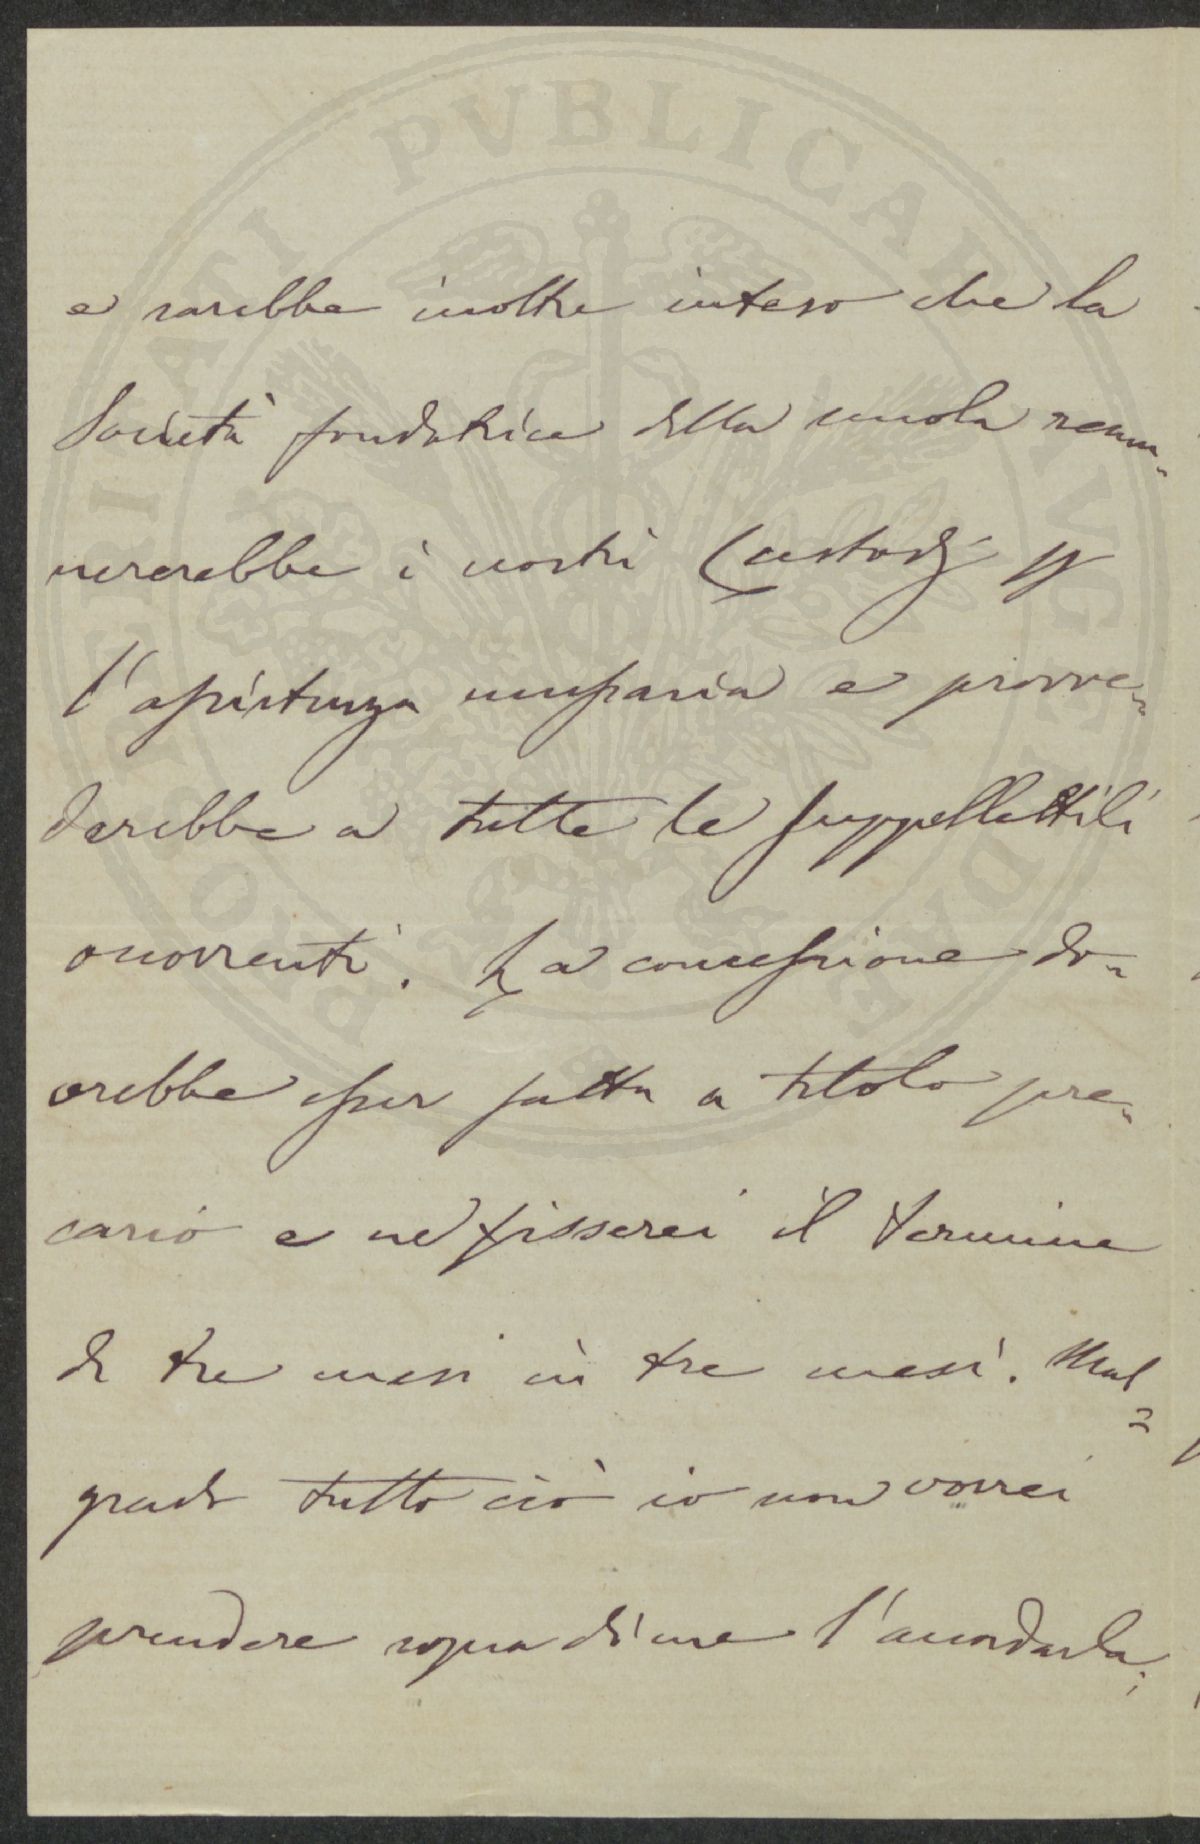 e sarebbe inoltre inteso che la
Società fondatrice della scuola remu-
nererebbe i nostri Custodj pp
l'assistenza necessaria e provve-
derebbe a tutte le suppellettili
occorrenti. La concessione do-
vrebbe esser fatta a titolo pre-
cario e ne fisserei il termine
di tre mesi in tre mesi. Mal-
grado tutto ciò io non vorrei
prendere sopra di me l'accordarla;